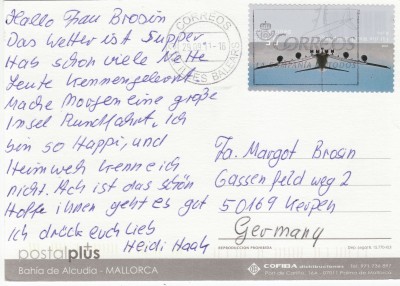 Hallo Frau Brosin
Das Wetter ist Supper
Hab schon viele Nette
Leute Kennengelernt
Mache Morgen eine große
Insel Rundfahrt, Ich
bin so Happi, und
Heimweh kenne ich
nicht. Ach ist das schön
Hoffe ihnen geht es gut
Ich drück euch lieb
Heidi Haak
CORREOS
CORREOS
Fa. Margot Brosin
Gassenfeldweg 2
50169 Kerpen
Germany
postalplus
Bahía de Alcudia - MALLORCA
REPRODUCCIÓN PROHIBIDA
COFIBA